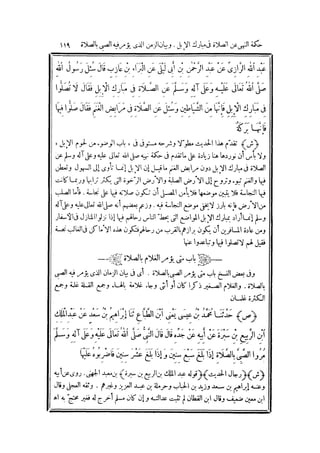 حكمة النهى عن الصلاة فى مبارك الإبل . وبيان الزمن الذى يؤمر فيه الصبى بالصلاة ١١٩
عبد الله الرازى عن عبد الرحمن بن أبى ليلى عن البراء بن عازب قال سئل رسول الله
صلى الله تعالى عليه وعلى آله وسلم عن الصلاة فى مبارك الإبل فقال لا تصلوا
فى مبارك الإبل فإنها من الشياطين وسئل عن الصلاة فى مرابض الغنم فقال صلوا فيها
فإنها بركة
﴿ش﴾ تقدم هذا الحديث مطولا وشرحه مستوفى فى « باب الوضوء من لحوم الإبل »
ولا بأس أن نورد هنا زيادة على ما تقدم فى حكمة نهيه صلى الله تعالى عليه وعلى آله وسلم عن
الصلاة فى مبارك الإبل دون مرابض الغنم ما قيل إن الإبل إنما تأوى إلى السهول وتعطن
فيها والغنم تبوء وتروح إلى الأرض الصلبة والأرض الرخوة التى يكثر ترابها وربما كانت
فيها النجاسة فلا يتبين موضعها فلا يأمن المصلى أن تكون صلاته فيها على نجاسة . فأما الصلب
من الأرض فإنه بارز لا يخفى موضع النجاسة فيه . وزعم بعضهم أنه صلى الله تعالى عليه وعلى آله
وسلم إنما أراد بمبارك الإبل المواضع التى يحط الناس رحالهم فيها إذا نزلوا المنازل فى الأسفار
ومن عادة المسافرين أن يكون برازهم بالقرب من رحالهم فتكون هذه الأماكن فى الغالب نجسة
فقيل لهم لا تصلوا فيها وتباعدوا عنها
باب متى يؤمر الغلام بالصلاة
وفى بعض النسخ باب متى يؤمر الصبى بالصلاة . أى فى بيان الزمان الذى يؤمر فيه الصبى
بالصلاة . والغلام الصغير ذكرا كان أو أنثى وجا. غلامة بالهاء وجمع القلة غلمة وجمع
الكثرة غلمان
﴿ص﴾ حدثنا محمد بن عيسى يعنى ابن الطباع ثنا إبراهيم بن سعد عن عبد الملك
ابن الربيع بن سبرة عن أبيه عن جده قال قال النبى صلى الله تعالى عليه وعلى آله وسلم
مروا الصبى بالصلاة إذا بلغ سبع سنين وإذا بلغ عشر سنين فاضربوه عليها
﴿ش﴾ ﴿رجال الحديث﴾ ﴿قوله عبد الملك بن الربيع بن سبرة﴾ بن معبد الجهنى. روى عن أبيه
وعنه إبراهيم بن سعد وزيد بن الحباب وحرملة بن عبد العزيز وغيرهم . وثقه العجلى وقال
ابن معين ضعيف وقال ابن القطان لم تثبت عدالته وإن كان مسلم أخرج له فغير محتج به اه